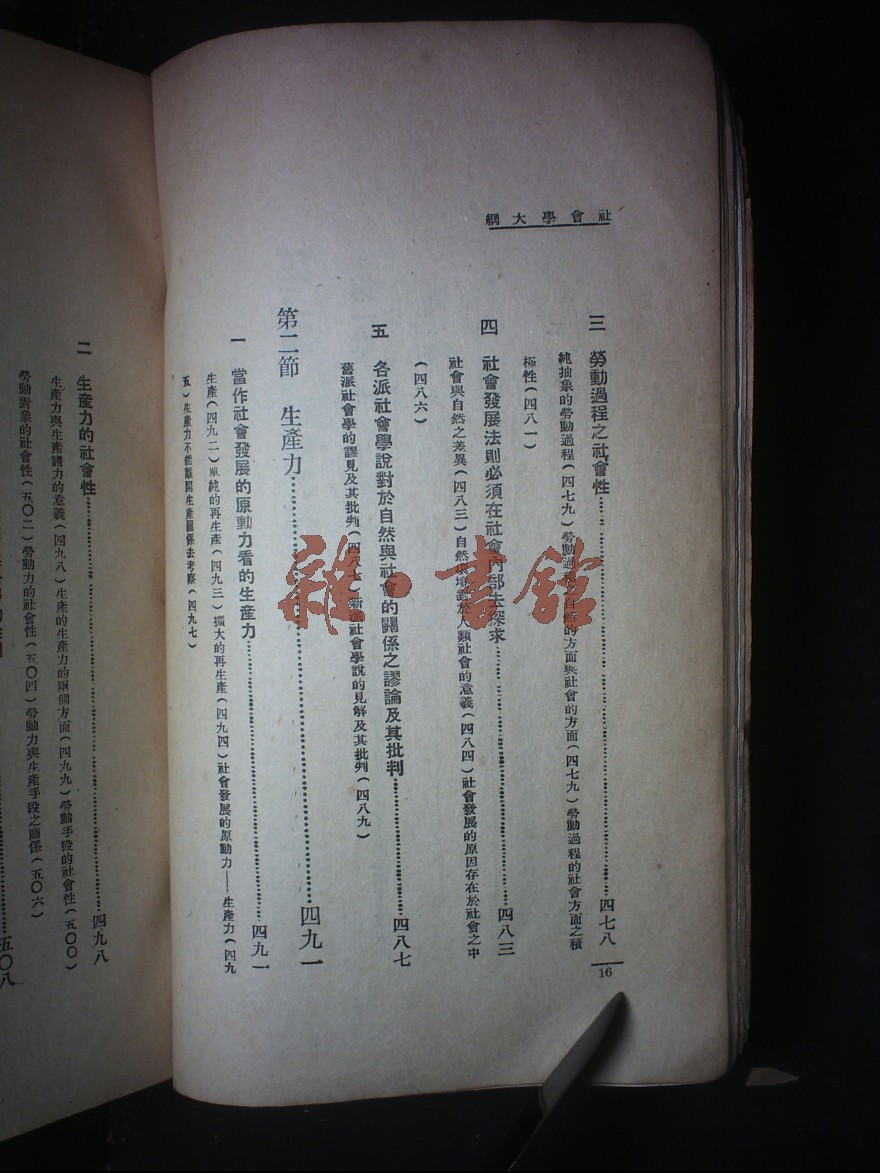 社會學大綱
三 勞動過程之社會性……四七八
純抽象的勞動過程(四七九)勞動過程之自然的方面與社會的方面(四七九)勞動過程的社會方面之積
極性(四八一)
四 社會發展法則必須在社會內部去探求……四八三
社會與自然之差異(四八三)自然環境對於人類社會的意義(四八四)社會發展的原因存在於社會之中
(四八六)
五 各派社會學說對於自然與社會的關係之謬論及其批判……四八七
舊派社會學的謬見及其批判(四八七)新派社會學說的見解及其批判(四八九)
第二節 生產力……四九一
一 當作社會發展的原動力看的生產力……四九一
生產(四九二)單純的再生產(四九三)擴大的再生產(四九四)社會發展的原動力——生產力(四九
五)生產力不能離開生產關係去考察(四九七)
16
二 生產力的社會性……四九八
生產力與生產諸力的意義(四九八)生產的生產力的兩個方面(四九九)勞動手段的社會性(五〇〇)
勞動對象的社會性(五〇二)勞動力的社會性(五〇四)勞動力與生產手段之關係(五〇六)
五〇八
雜·書館